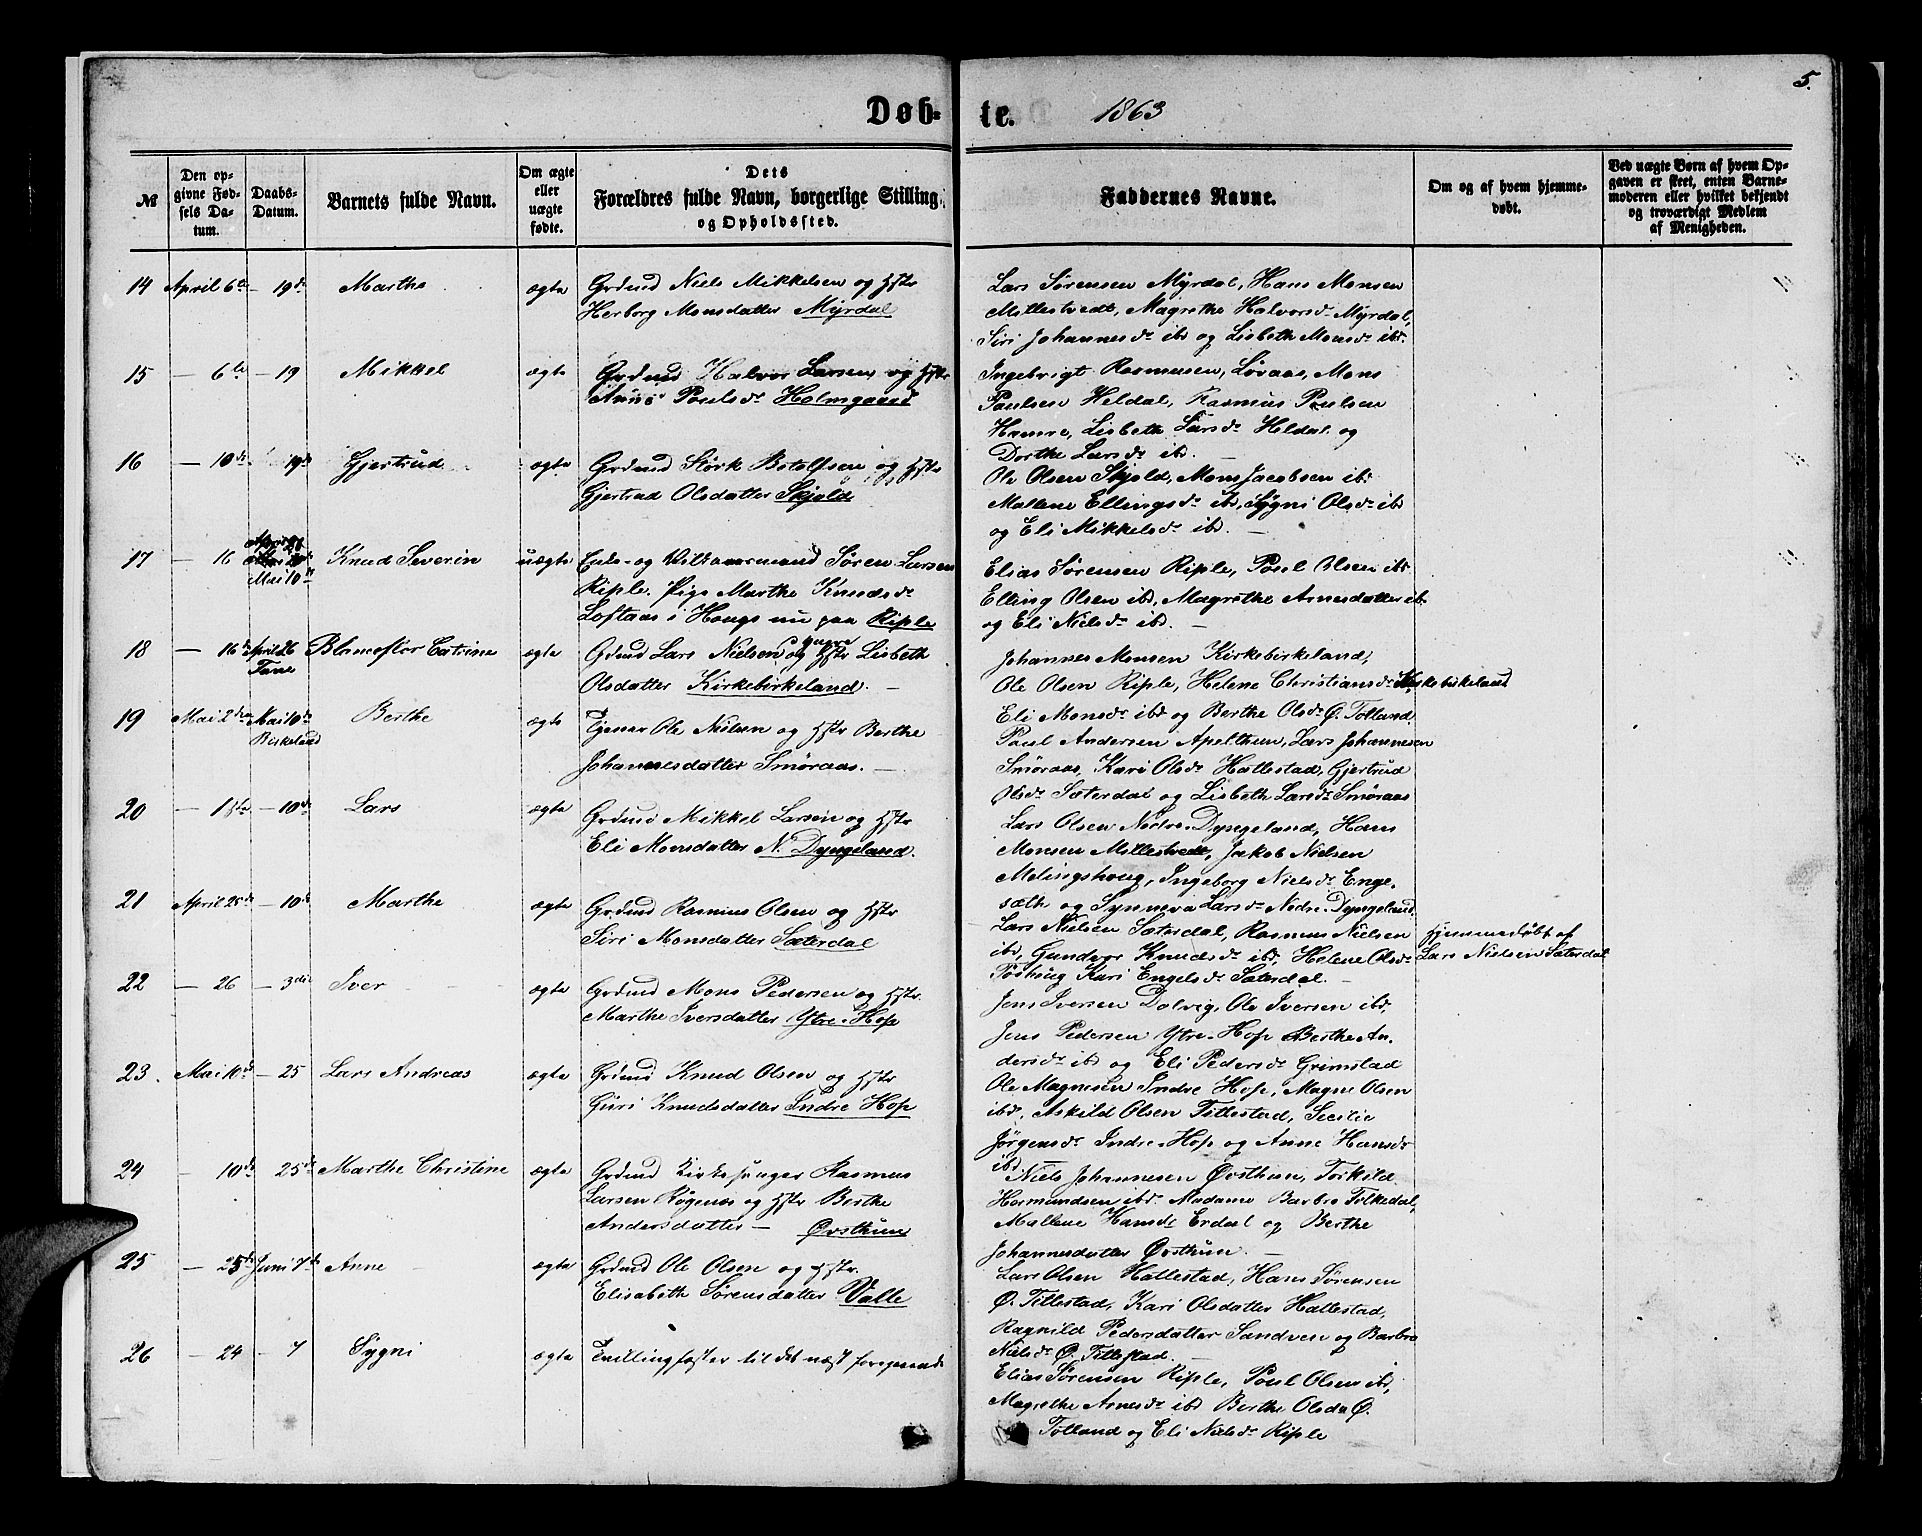 5.
Døb-te. 1863
№
Den opgivne Fødsels Datum.
Daabs-Datum.
Barnets fulde Navn.
Om ægte eller uægte fødte.
Dets Forældres fulde Navn, borgerlige Stilling og Opholdssted.
Faddernes Navne.
Om og af hvem hjemmedøbt.
Ved uægte Børn af hvem Opgaven er skeet, enten Barnemoderen eller hvilket bekjendt og troværdigt Medlem af Menigheden.
14 April 6te – 19de Marthe ægte Grdmd Niels Mikkelsen og Hstr
Herborg Monsdatter Myrdal
Lars Sørensen Myrdal, Hans Monsen
Millestvedt, Magrethe Halvorsdr Myrdal,
Siri Johannesdr ibd og Lisbeth Monsdr ibd.
15 – 6te – 19 Mikkel ægte Grdmd Halvor Larsen og Hstr
Anne Poulsdr Holmgaard
Ingebrigt Rasmusen, Løvaas, Mons
Paulsen Heldal, Rasmus Poulsen
Hamre, Lisbeth Larsdr Heldal og
Dorthe Larsdr ibd. –
16 – 10de 19de Gjertrud ægte Grdmd Størk Botolfsen og Hstr
Gjertrud Olsdatter Skjold
Ole Olsen Skjold, Mons Jacobsen ibd
Mallene Ellingsdr ibd, Sygni Olsdr ibd
og Eli Mikkelsdr ibd. –
17 – 16 Mai 10de Knud Severin uægte Enke- og Vilkaarsmand Søren Larsen
Riple. Pige Marthe Knudsdr
Loftaas i Hougs nu paa Riple
Elias Sørensen Riple, Poul Olsen ibd
Elling Olsen ibd, Magrethe Arnesdatter ibd
og Eli Nielsdr ibd. –
18 – 16de April 26 Fane Blanceflor Catrine ægte Grdmd Lars Nielsen yngre og Hstr Lisbeth
Olsdatter Kirkebirkeland. –
Johannes Monsen Kirkebirkeland,
Ole Olsen Riple, Helene Christiansdr Kirkebirkeland
Eli Monsdr ibd og Berthe Olsdr Ø. Tolland.
19 Mai 2den Mai 10de Birkeland Berthe ægte Tjener Ole Nielsen og Hstr Berthe
Johannesdatter Smøraas. –
Poul Andersen Apelthun, Lars Johannesen
Smøraas, Kari Olsdr Hallestad, Gjertrud
Olsdr Sæterdal og Lisbeth Larsdr Smøraas
20 – 1ste – 10de Lars ægte Grdmd Mikkel Larsen og Hstr
Eli Monsdatter N. Dyngeland.
Lars Olsen Nedre-Dyngeland, Hans
Monsen Millestvedt, Jakob Nielsen
Melingshoug, Ingeborg Nielsdr Enge-
sæth og Synneva Larsdr Nedre-Dyngeland.
21 April 25de – 10de Marthe ægte Grdmd Rasmus Olsen og Hstr
Siri Monsdatter Sæterdal
Lars Nielsen Sæterdal, Rasmus Nielsen
ibd, Gundvor Knudsdr ibd, Helene Olsdr
Kari Engelsdr Sæterdal. –
Hjemmedøbt af
Lars Nielsen Sæterdal
22 – 26 – 3die Iver ægte Grdmd Mons Pedersen og Hstr.
Marthe Iversdatter Ytre-Hop
Jens Iversen Dolvig, Ole Iversen ibd,
Jens Pedersen Ytre-Hop Berthe An-
dersdr ibd og Eli Pedersdr Grimstad
23. Mai 10de – 25 Lars Andreas ægte Grdmd Knud Olsen og Hstr
Guri Knudsdatter Indre Hop
Ole Magnesen Indre Hop, Magne Olsen
ibd, Askild Olsen Titlestad, Secilie
Jørgensdr Indre-Hop og Anne Hansdr
ibd
24 – 10de 25de Marthe Christine ægte Grdmd Kirkesanger Rasmus
Larsen Røgenæs og Hstr Berthe
Andersdatter – Øvsthun
Niels Johannesen Øvsthun, Torkild
Hormundsen ibd. Madame Barbro Folkedal,
Mallene Hansdr Erdal og Berthe
Johannesdatter Øvsthun. –
25 – 25de Juni 7de Anne ægte Grdmd Ole Olsen og Hstr.
Elisabeth Sørensdatter Valle
Lars Olsen Hallestad, Hans Sørensen
Ø. Titlestad, Kari Olsdatter Hallestad,
Ragnild Pedersdatter Sandven og Barbro
Nielsdr Ø. Titlestad. –
26 – 24 – 7 Sygni ægte Tvillingsøster til det næst foregaaende
Elias Sørensen Riple, Poul Olsen ibd,
Magrethe Arnesdr ibd Berthe Olsdr Ø.
Tolland og Eli Nielsdr Riple